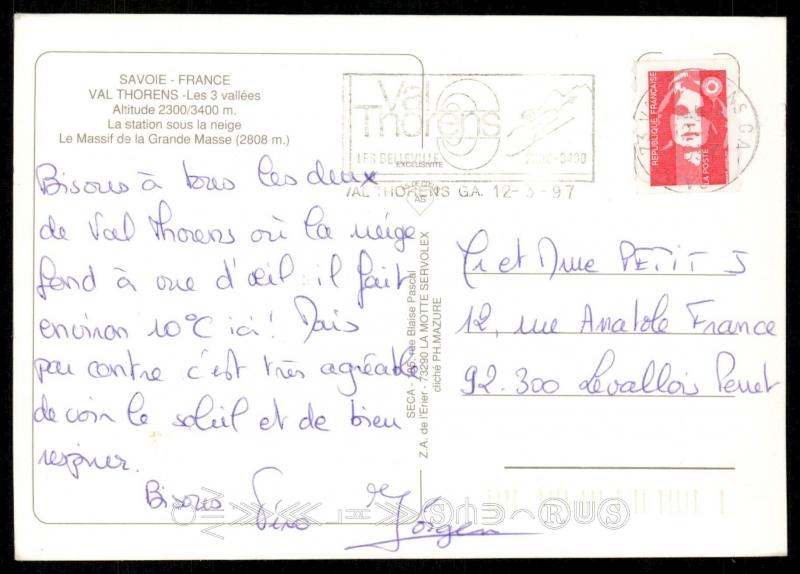 SAVOIE - FRANCE
VAL THORENS -Les 3 vallées
Altitude 2300/3400 m.
La station sous la neige
Le Massif de la Grande Masse (2808 m.)
Bisous à tous les deux
de Val Thorens où la neige
fond à vue d'œil : il fait
environ 10°C ici ! Mais
par contre c'est très agréable
de voir le soleil et de bien
respirer.
Bisous
Jörgen
Val Thorens
LES BELLEVILLE 2300-3400
EXCLUSIVITÉ
VAL THORENS G.A. 12-3-97
RÉPUBLIQUE FRANÇAISE
LA POSTE
SECA - rue Blaise Pascal
Z.A. de l'Erier - 73290 LA MOTTE SERVOLEX
cliché PH.MAZURE
Mr et Mme PETIT J
12, rue Anatole France
92.300 Levallois Perret